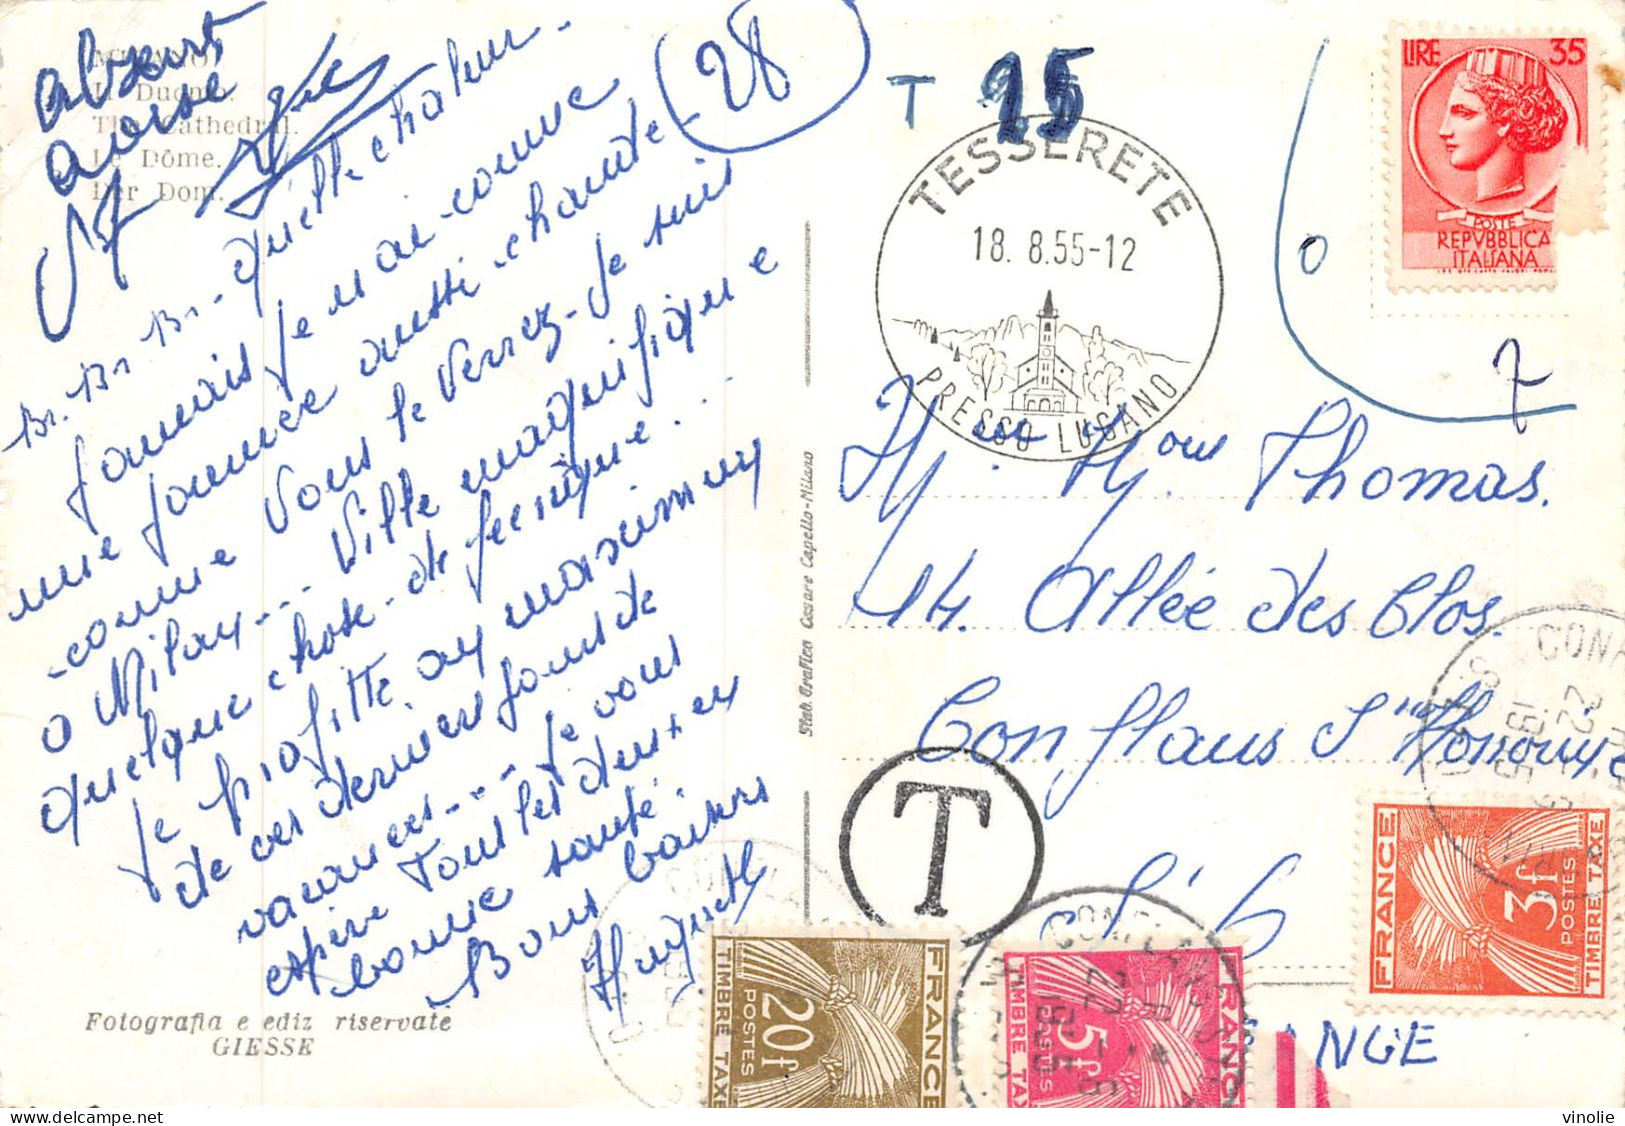 MILANO.
Il Duomo.
The Cathedral.
Le Dôme.
Der Dom.
absent
28
Br. Br. Br. Quelle chaleur.
Jamais je n'ai connue
une journée aussi chaude
comme vous le verrez. Je suis
à Milan... Ville magnifique
quelque chose de féerique..
Je profitte au maximum
de ces derniers jours de
vacances.... Je vous
espère tous les deux en
bonne santé.
Bons baisers
Huguette
Fotografia e ediz riservate
GIESSE
Stab. Grafico Cesare Capello-Milano
T 25
TESSERETE
18. 8.55-12
PRESSO LUGANO
LIRE 35
POSTE
REPVBBLICA
ITALIANA
0
7
M. et Mme Thomas.
14. Allée des Clos.
Conflans Ste Honorine
S. & O.
FRANCE
T
FRANCE
3f
POSTES
TIMBRE TAXE
FRANCE
20f
POSTES
TIMBRE TAXE
FRANCE
5f
POSTES
TIMBRE TAXE
CONFLANS
vinolie